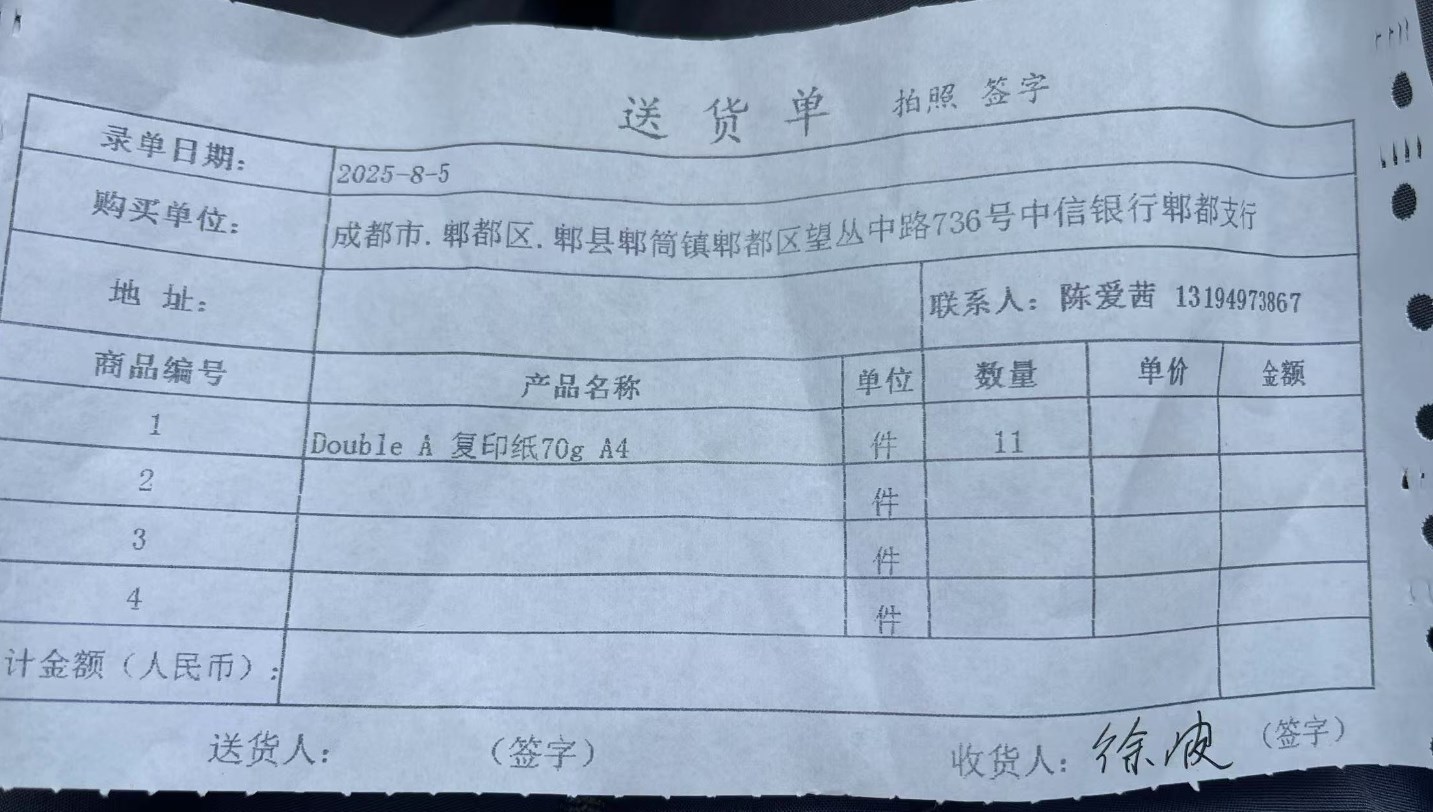 送货单 拍照 签字
录单日期: 2025-8-5
购买单位: 成都市.郫都区.郫县郫筒镇郫都区望丛中路736号中信银行郫都支行
地 址: 联系人: 陈爱茜 13194973867
商品编号 产品名称 单位 数量 单价 金额
1 Double A 复印纸70g A4 件 11
2 件
3 件
4 件
计金额(人民币):
送货人: (签字) 收货人: 徐波 (签字)